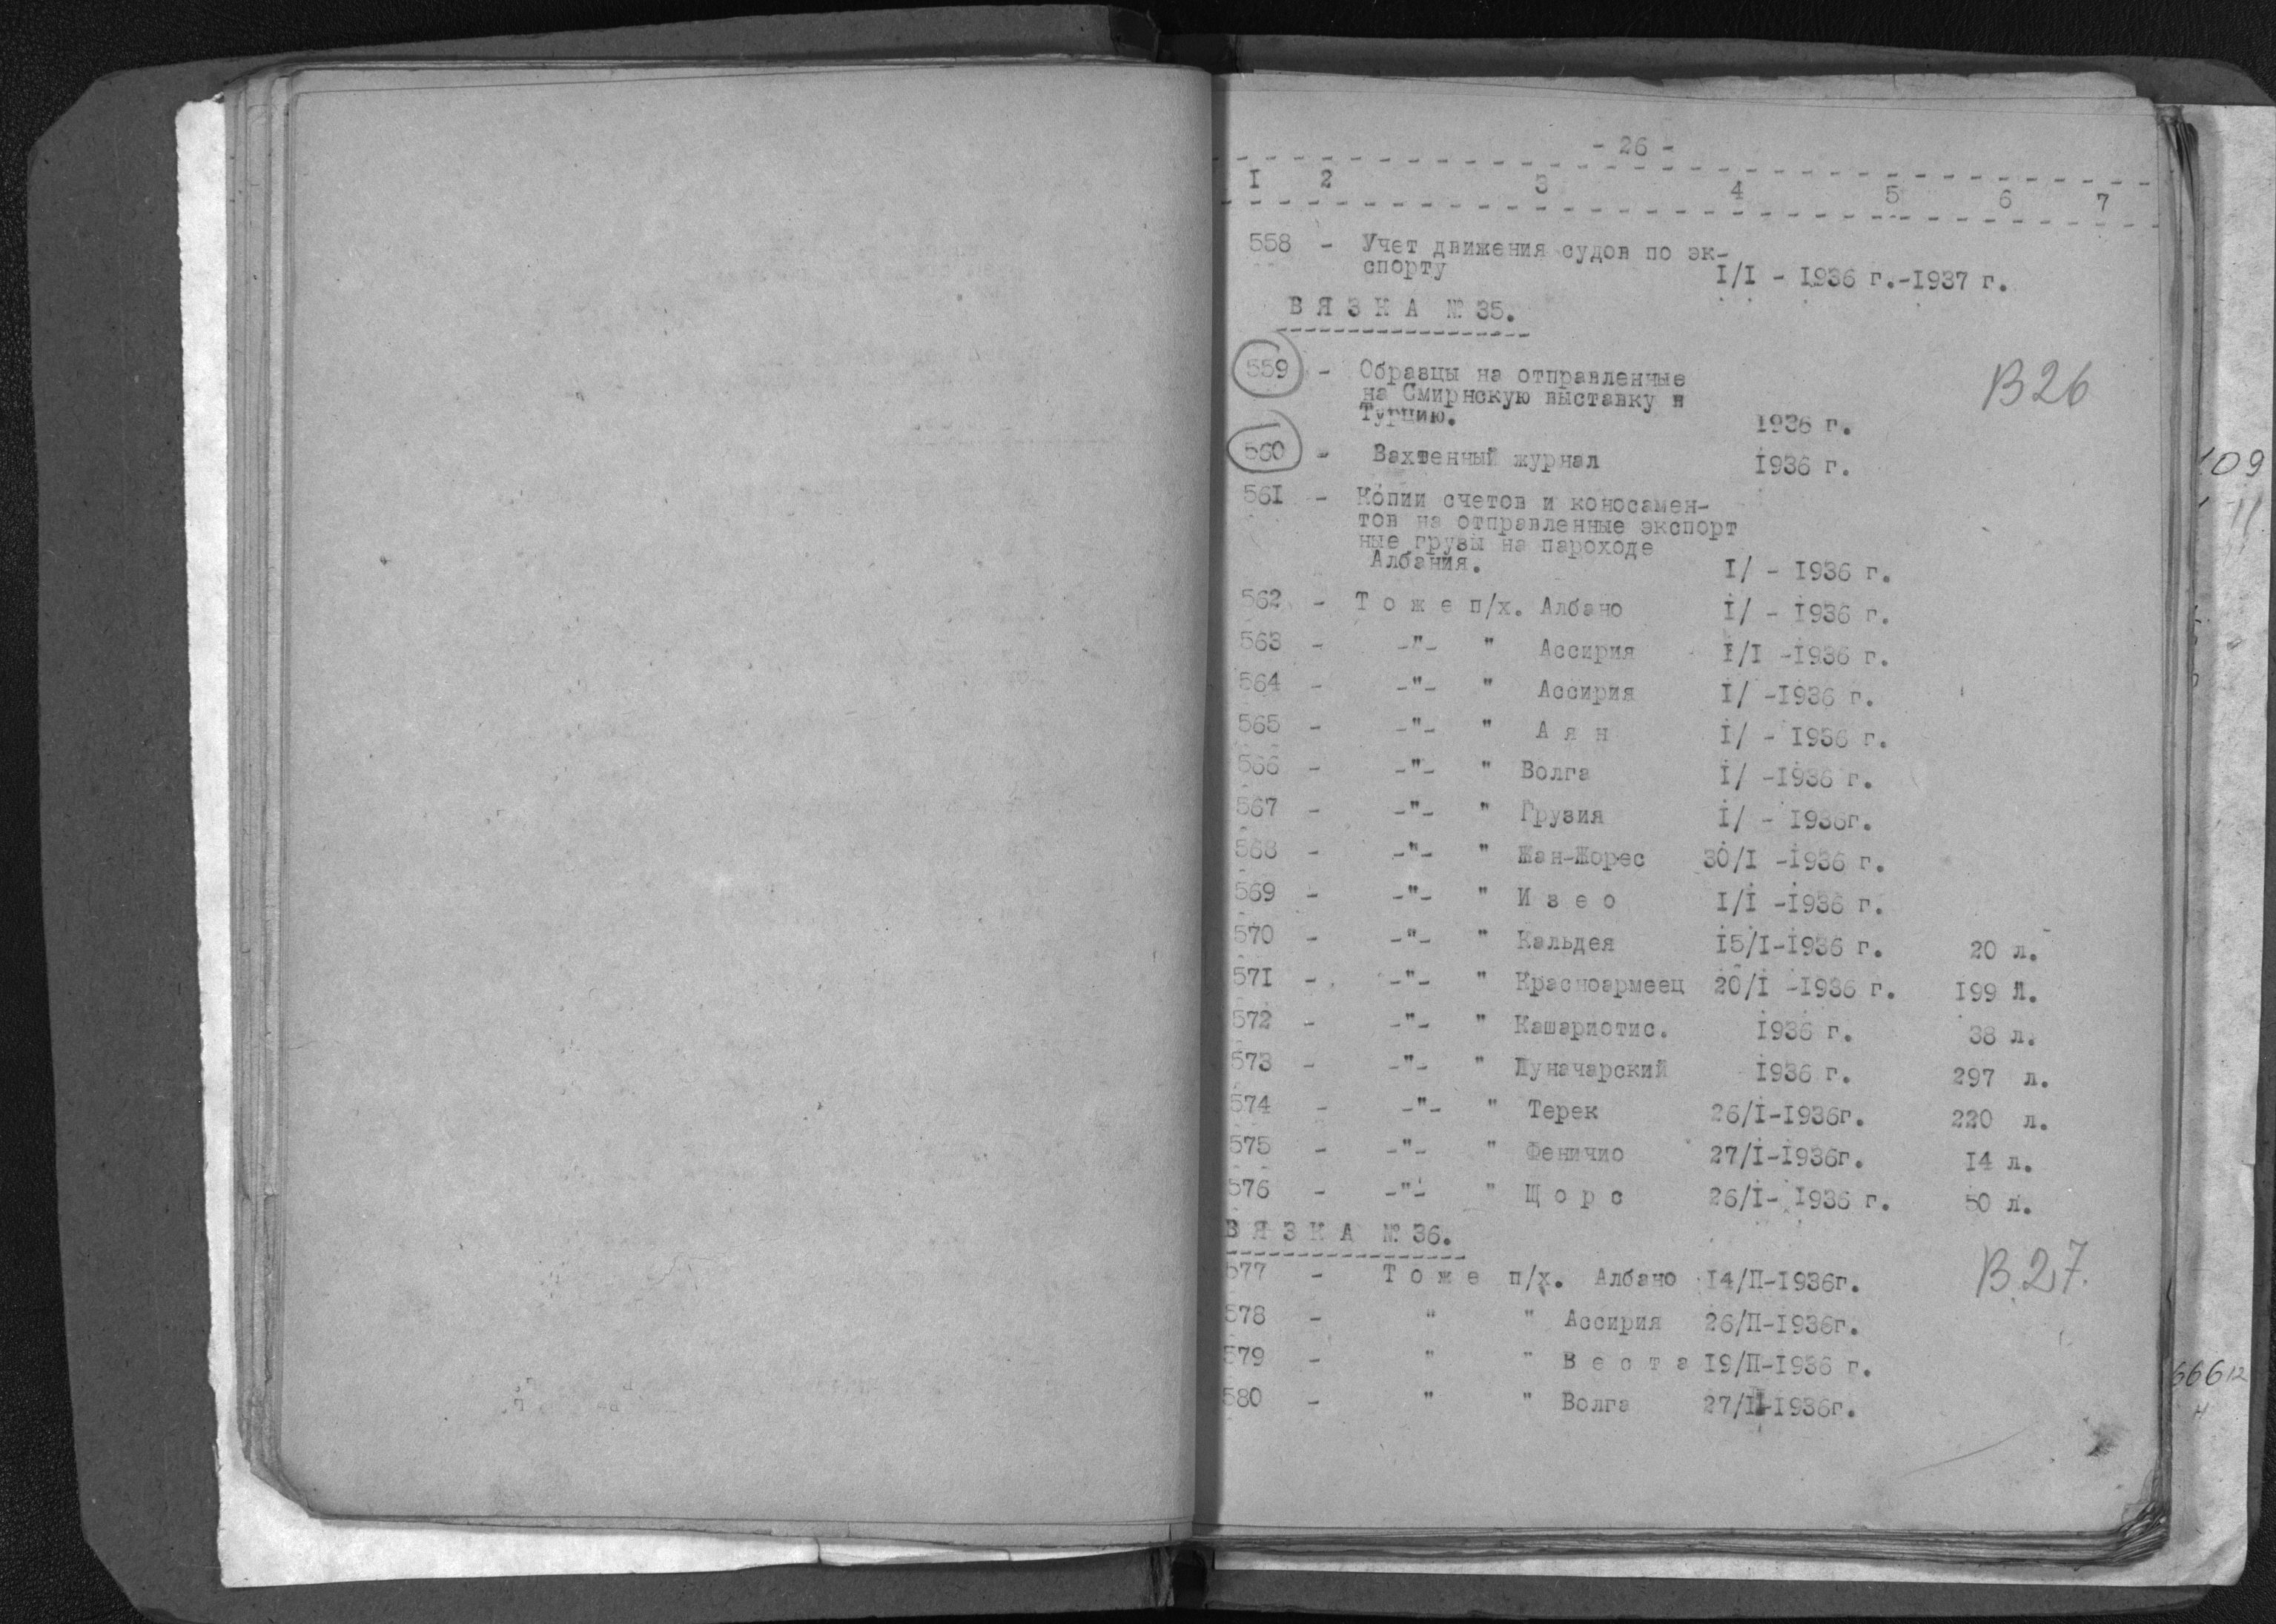 - 26 -
I 2 3 4 5 6 7
558 - Учет движения судов по эк-
спорту I/I - 1936 г.-1937 г.
В Я З К А № 35.
559 - Образцы на отправленные
на Смирнскую выставку в
Турцию. 1936 г.
В 26
560 - Вахтенный журнал 1936 г.
561 - Копии счетов и коносамен-
тов на отправленные экспорт
ные грузы на пароходе
Албания. I/ - 1936 г.
562 - Т о ж е п/х. Албано I/ - 1936 г.
563 - -"- " Ассирия I/I -1936 г.
564 - -"- " Ассирия I/ -1936 г.
565 - -"- " А я н I/ - 1936 г.
566 - -"- " Волга I/ -1936 г.
567 - -"- " Грузия I/ - 1936г.
568 - -"- " Жан-Жорес 30/I -1936 г.
569 - -"- " И з е о I/I -1936 г.
570 - -"- " Кальдея 15/I-1936 г. 20 л.
571 - -"- " Красноармеец 20/I -1936 г. 199 л.
572 - -"- " Кашариотис. 1936 г. 38 л.
573 - -"- " Луначарский 1936 г. 297 л.
574 - -"- " Терек 26/I-1936г. 220 л.
575 - -"- " Феничио 27/I-1936г. 14 л.
576 - -"- " Щ о р с 26/I- 1936 г. 50 л.
В Я З К А № 36.
577 - Т о ж е п/х. Албано 14/II-1936г.
В.27.
578 - " " Ассирия 26/II-1936г.
579 - " " В е с т а 19/II-1936 г.
580 - " " Волга 27/II-1936г.
109
11
66612